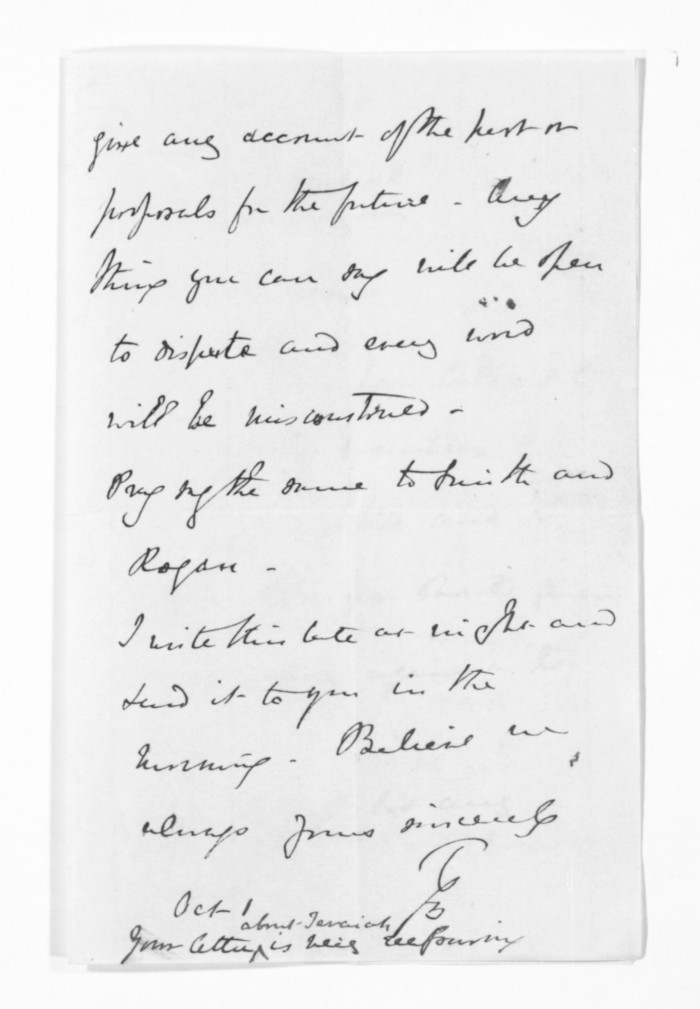 give any account of the past or
proposals for the future - Any
thing you can say will be open
to dispute and every word
will be misconstrued -
Pray say the same to Smith and
Rogan -
I write this late at night and
send it to you in the
morning - Believe me
always yours sincerely
TGB
Oct 1
about Taraiak
Your letter ^ is very reassuring